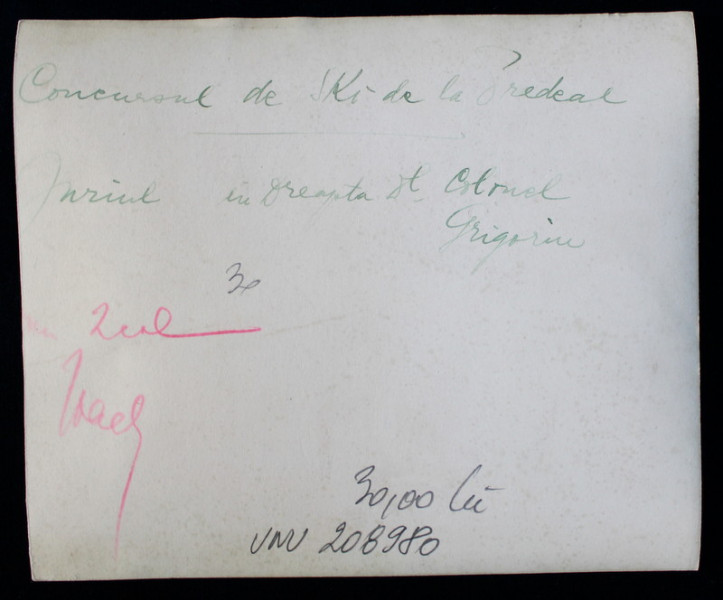 Concursul de Ski de la Predeal
Juriul in dreapta dl. Colonel
Grigoriu
30
30,00 lei
208980